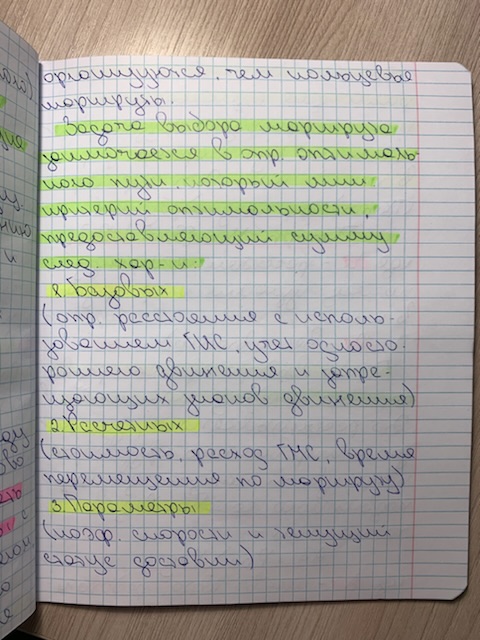 организуются, чем кольцевые
маршруты.
Задача выбора маршрута
заключается в опр. оптималь-
ного пути, который мин.
критерий оптимальности,
предоставляющий сумму
след. хар-к:
1. Базовых
(опр. расстояния с исполь-
зованием ГИС, учет односто-
роннего движения и запре-
щающих знаков движения)
2. Рссчетных
(стоимость, расход ГМС, время
перемещения по маршруту)
3. Параметры
(коэф. скорости и текущий
статус доставки)